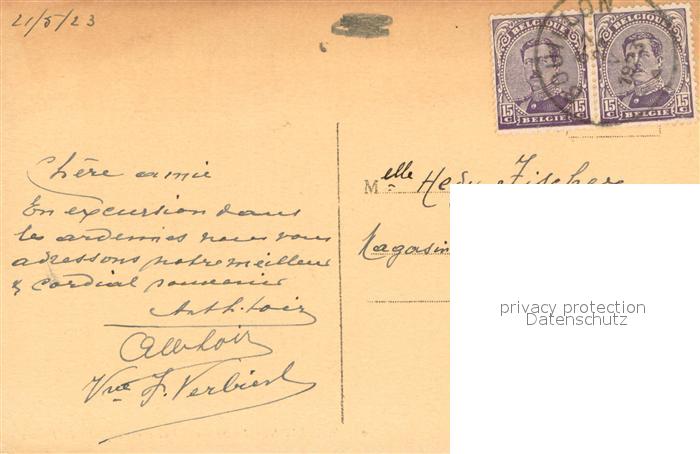 21/5/23
BELGIQUE BELGIQUE
15 C 15 C 15 C 15 C
BELGIE BELGIE
Chère amie
En excursion dans
les ardennes nous vous
adressons notre meilleur
& cordial souvenir
Vve J. Verbiest
Melle Hedy Fischer
Magasin
privacy protection
Datenschutz